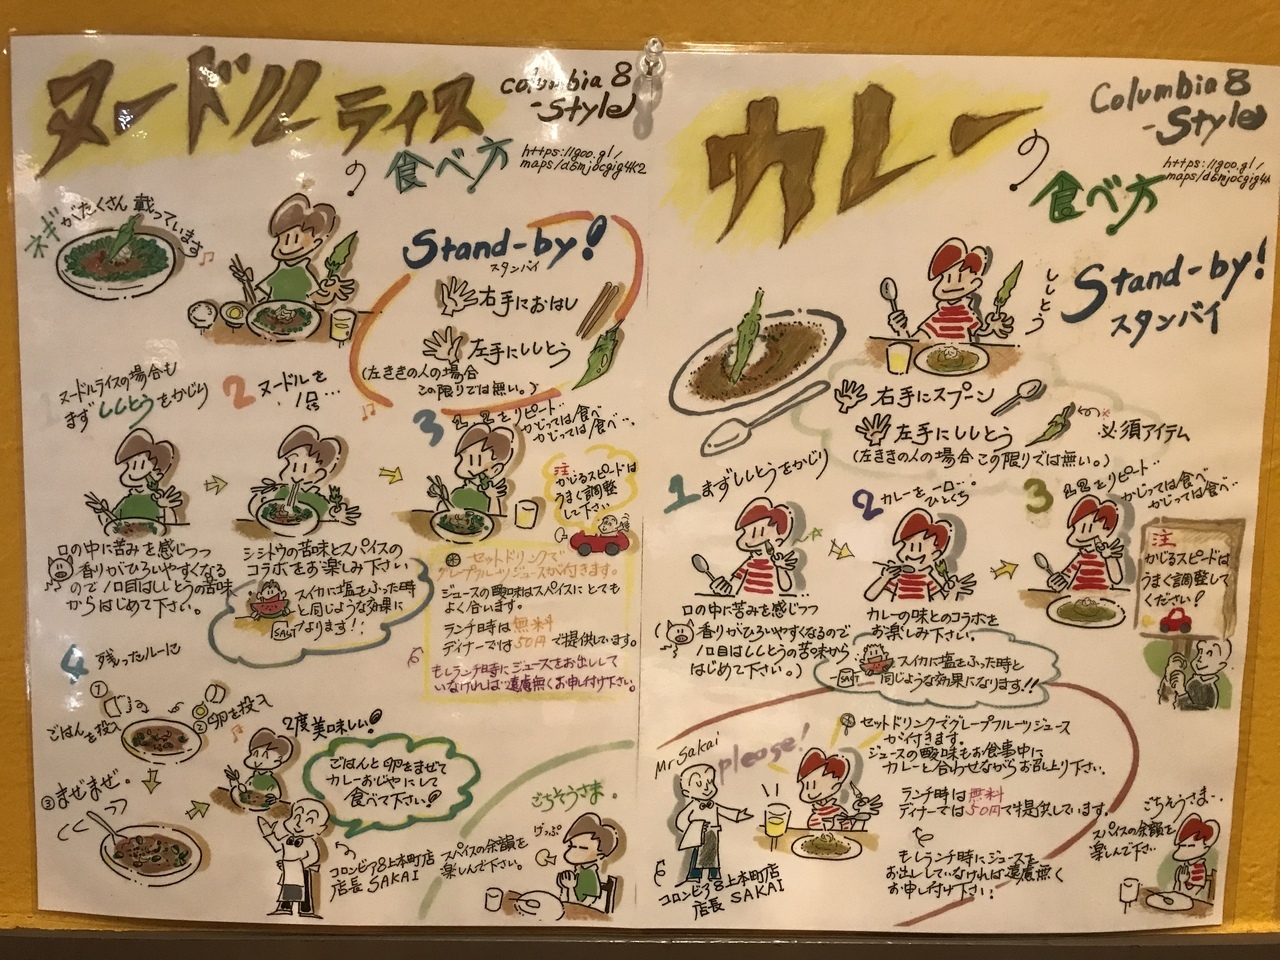 ヌードルライス
の
食べ方
Columbia 8
-Style
https://goo.gl/
maps/d6mjocgig4k2
ネギがたくさん載っています
Stand-by!
スタンバイ
右手におはし
左手にししとう
(左ききの人の場合
この限りでは無い。)
1 ヌードルライスの場合も
まずししとうをかじり
2 ヌードルを
一口…
くち
3
をリピード…
かじっては食べ
かじっては食べ…
注
かじるスピードは
うまく調整
して下さい
口の中に苦みを感じつつ
香りがひろいやすくなる
ので1口目はししとうの苦味
からはじめて下さい。
シシトウの苦味とスパイスの
コラボをお楽しみ下さい
スイカに塩をふった時
と同じような効果に
なります!!
SALT
セットドリンクで
グレープフルーツジュースが付きます。
ジュースの酸味はスパイスにとても
よく合います。
ランチ時は無料
ディナーでは50円で提供しています。
もしランチ時にジュースをお出しして
いなければ遠慮無くお申し付け下さい。
4 残ったルーに
①
ごはんを投入
②卵を投入
③まぜまぜ。
2度美味しい!
ごはんと卵をまぜて
カレーおじやにして
食べて下さい!
コロンビア8上本町店
店長 SAKAI
ごちそうさま。
げっぷ
スパイスの余韻を
楽しんで下さい。
カレー
の
食べ方
Columbia 8
-Style
https://goo.gl/
maps/d6mjocgig4k
Stand-by!
スタンバイ
ししとう
右手にスプーン
左手にししとう
必須アイテム
(左ききの人の場合この限りでは無い。)
1 まずししとうをかじり
2 カレーを一口…。
ひとくち
3
をリピート…
かじっては食べ…
かじっては食べ…
注
かじるスピードは
うまく調整して
ください!
口の中に苦みを感じつつ
香りがひろいやすくなるので
1口目はししとうの苦味から
はじめて下さい。)
カレーの味とのコラボを
お楽しみ下さい。
スイカに塩をふった時と
同じような効果になります!!
SALT
セットドリンクでグレープフルーツジュース
が付きます。
ジュースの酸味もお食事中に
カレーと合わせながらお召し上り下さい。
ランチ時は無料
ディナーでは50円で提供しています。
もしランチ時にジュースを
お出ししていなければ遠慮無く
お申し付け下さい!
Mr Sakai
please!
コロンビア8上本町店
店長 SAKAI
ごちそうさま…
スパイスの余韻を
楽しんで下さい